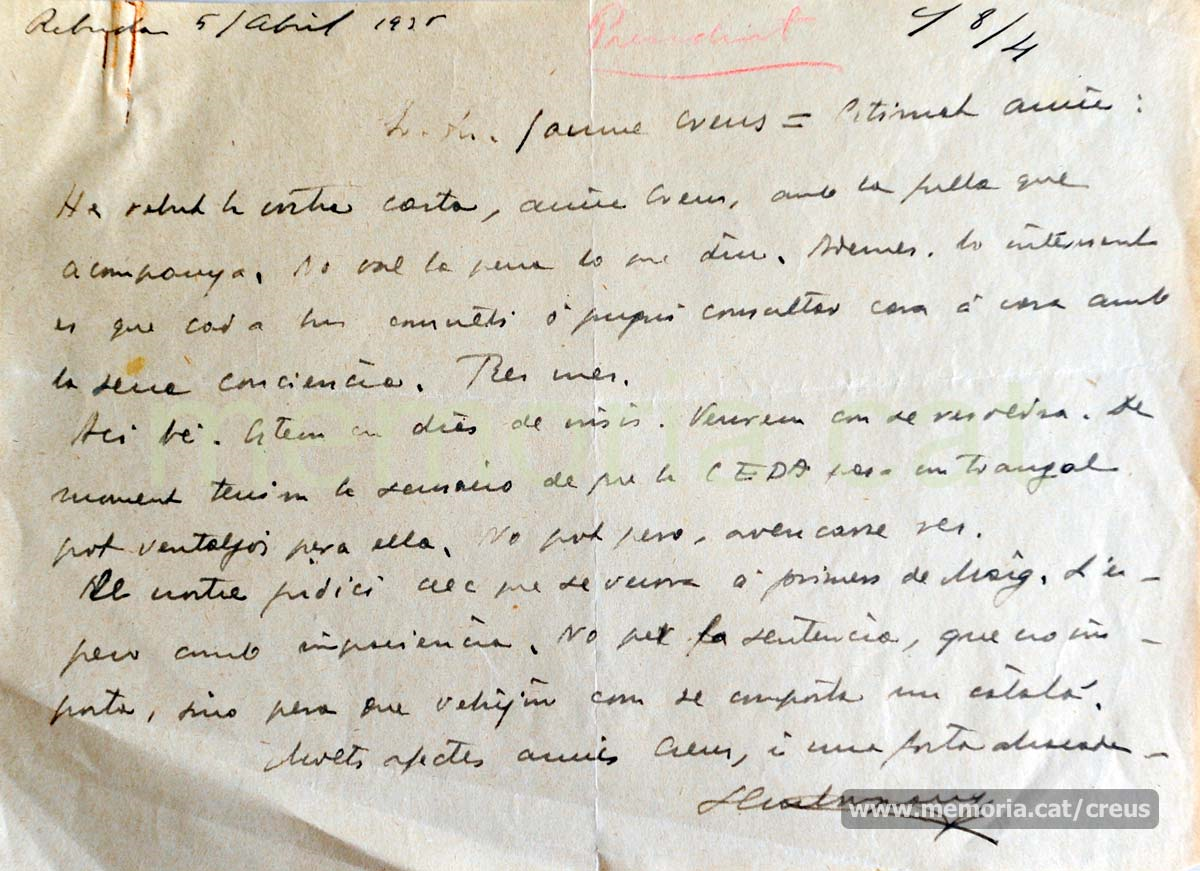 Rebuda 5/Abril 1935 President 8/4
Sr. Dn. Jaume Creus = Estimat amic:
He rebut la vostra carta, amic Creus, amb la fulla que
acompanya. No val la pena lo que diu. Ademes. lo interessant
es que cada hu cara á cara amb
la seua conciencia. Res mes.
Aci bé. Estem en dies de crisis. Veurem com se resoldra. De
moment tenim la sensacio de que la CEDA pasa un trangol
pot ventatjós pera ella. No pot pero, avençarse res.
El nostre judici crec que se veurá á primers de Maig. L'es-
pero amb impaciencia. No per la sentencia, que no im-
porta, sino pera que vehigin com se comporta un catalá.
Molts afectes amic Creus, i una forta abraçada
www.memoria.cat/creus
memoria.cat